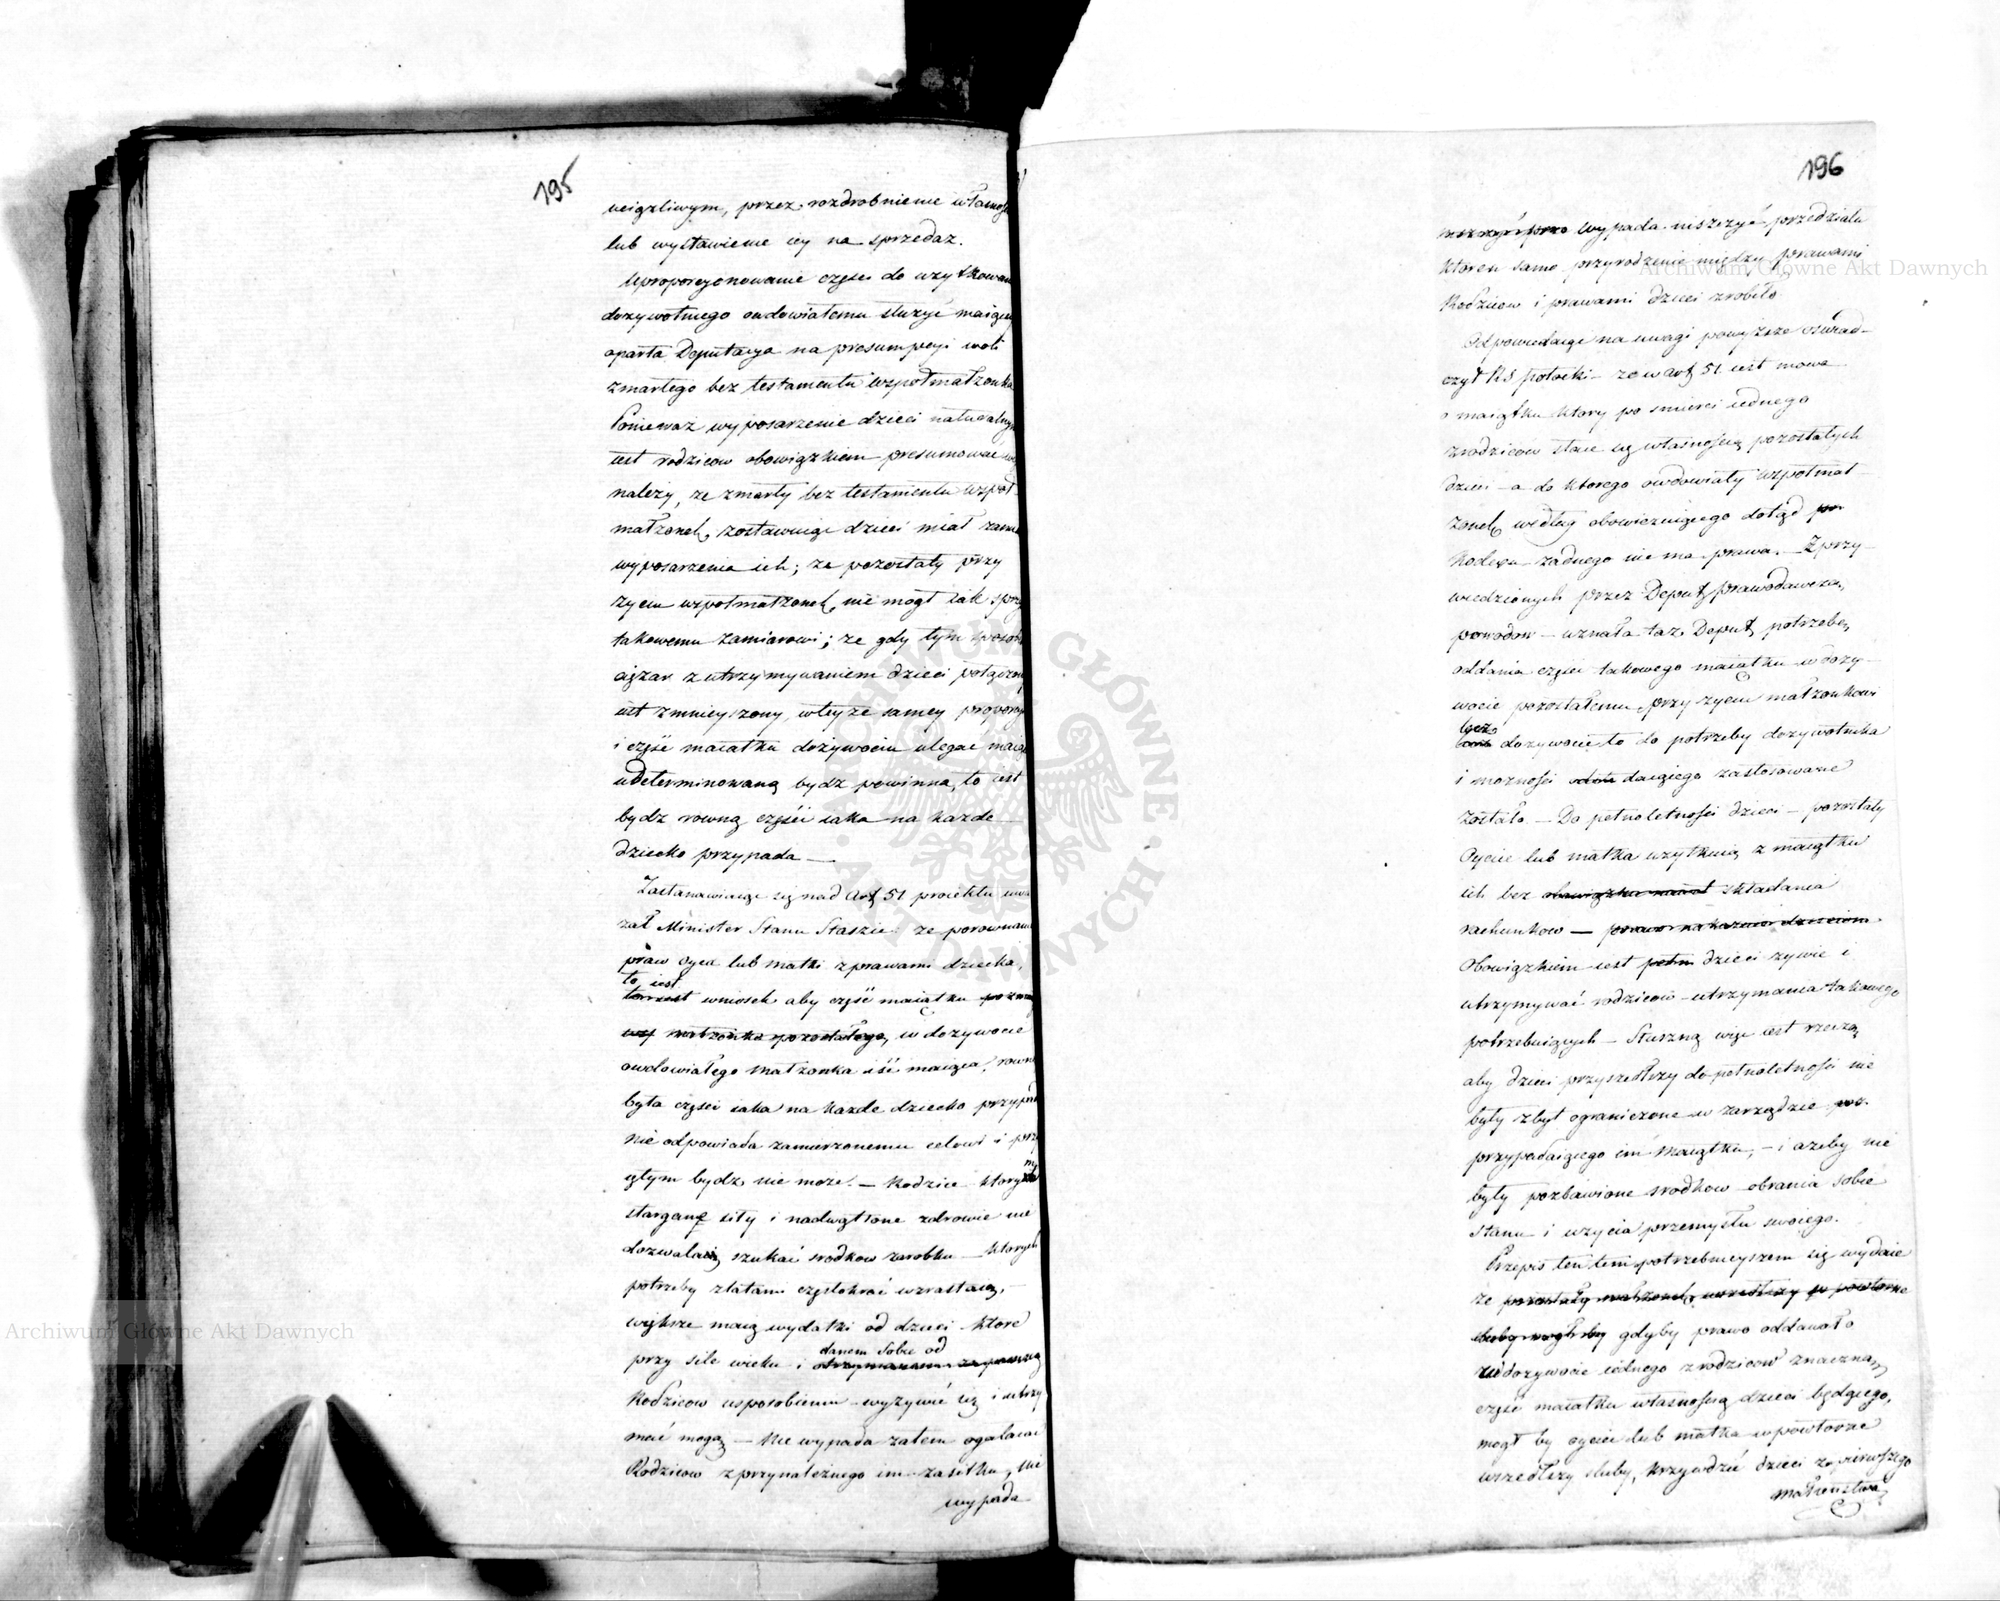 195
uciążliwym, przez rozdrobnienie własnoś
lub wystawienie iey na sprzedaz.
Uproporcyonowanie częsci do uzytkowan
dozywotniego owdowiałemu służyć maiące
oparta Deputacya na presumpcyi woli
zmarłego bez testamentu wspołmałzonka
Ponieważ wyposarzenie dzieci naturalnym
iest rodzicow obowiązkiem presumować
należy, ze zmarły bez testamentu wspoł
małzonek, zostawuiąc dzieci miał zam
wyposarzenia ich; ze pozostały przy
zyciu wspołmałzonek, nie mogł iak sprz
takowemu zamiarowi; ze gdy tym sposob
ciężar z utrzymywaniem dzieci połączony
iest zmnieyszony, wteyże samey proporcy
i częśc maiatku dożywociu ulegac maiąc
udeterminowaną bydz powinna, to iest
bydz rowną częśći iaka na kazde
dziecko przypada —
Zastanawiaiąc się nad Art 51 proiektu uwa
zał Minister Stanu Staszic: ze porownanie
praw oyca lub matki z prawami dziecka,
to iest
wniosek aby częśc maiątku
małzonka pozostałego, w dozywocie
owdowiałego małzonka iśc maiąca, rown
była częsci iaka na kazde dziecko przypad
nie odpowiada zamierzonemu celowi i przy
ętym bydz nie moze. — Rodzice ktorym
stargane siły i nadwątlone zdrowie nie
dozwalaią szukać srodkow zarobku — ktorych
potrzeby z latami częstokroć wzrastaią, —
większe maią wydatki od dzieci ktore
danem sobie od
przy sile wieku i
Rodzicow usposobieniu — wyzywić się i utrzy
mać mogą — Nie wypada zatem ogałacać
Rodzicow z przynaleznego im zasiłku, nie
wypada
196
wypada niszczyć przedziału
ktoren samo przyrodzenie między prawami
Rodzicow i prawami dzieci zrobiło.
Odpowiadaiąc na uwagi powyższe oswiad-
czył KS Potocki — ze w Art 51 iest mowa
o maiątku ktory po smierci iednego
z rodzicow staie się własnością pozostałych
dzieci — a do ktorego owdowiały wspołmał
zonek według obowiezuiącego dotąd
Kodexu zadnego nie ma prawa. — Z przy
wiedzionych przez Deput. prawodawczą,
powodow — uznała taz Deput. potrzebę,
oddania częsci takowego maiątku w dozy-
wocie pozostałemu przy zyciu małzonkowi
lecz
dozywocie to do potrzeby dozywotnika
i moznośći daiącego zastosowane
zostało. — Do pełnoletnośći dzieci — pozostały
Oyciec lub matka uzytkuią z maiątku
ich bez składania
rachunkow —
Obowiązkiem iest dzieci zywić i
utrzymywać rodzicow — utrzymania takowego
potrzebuiących — Słuszną więc iest rzeczą,
aby dzieci przyszedłszy do pełnoletnośći nie
były zbyt ograniczone w zarządzie
przypadaiącego im maiątku, — i azeby nie
były pozbawione srodkow obrania sobie
stanu i uzycia przemysłu swoiego.
Przepis ten tem potrzebnieyszem się wydaie
ze pozostały małzonek, wszedłszy w powtorne
śluby mogłby gdyby prawo oddawało
w dozywocie iednego z rodzicow znaczną,
częsć maiatku własnością dzieci będącego,
mogł by oyciec lub matka w powtorne
wszedłszy sluby, krzywdzić dzieci z pierwszego
małzenstwa